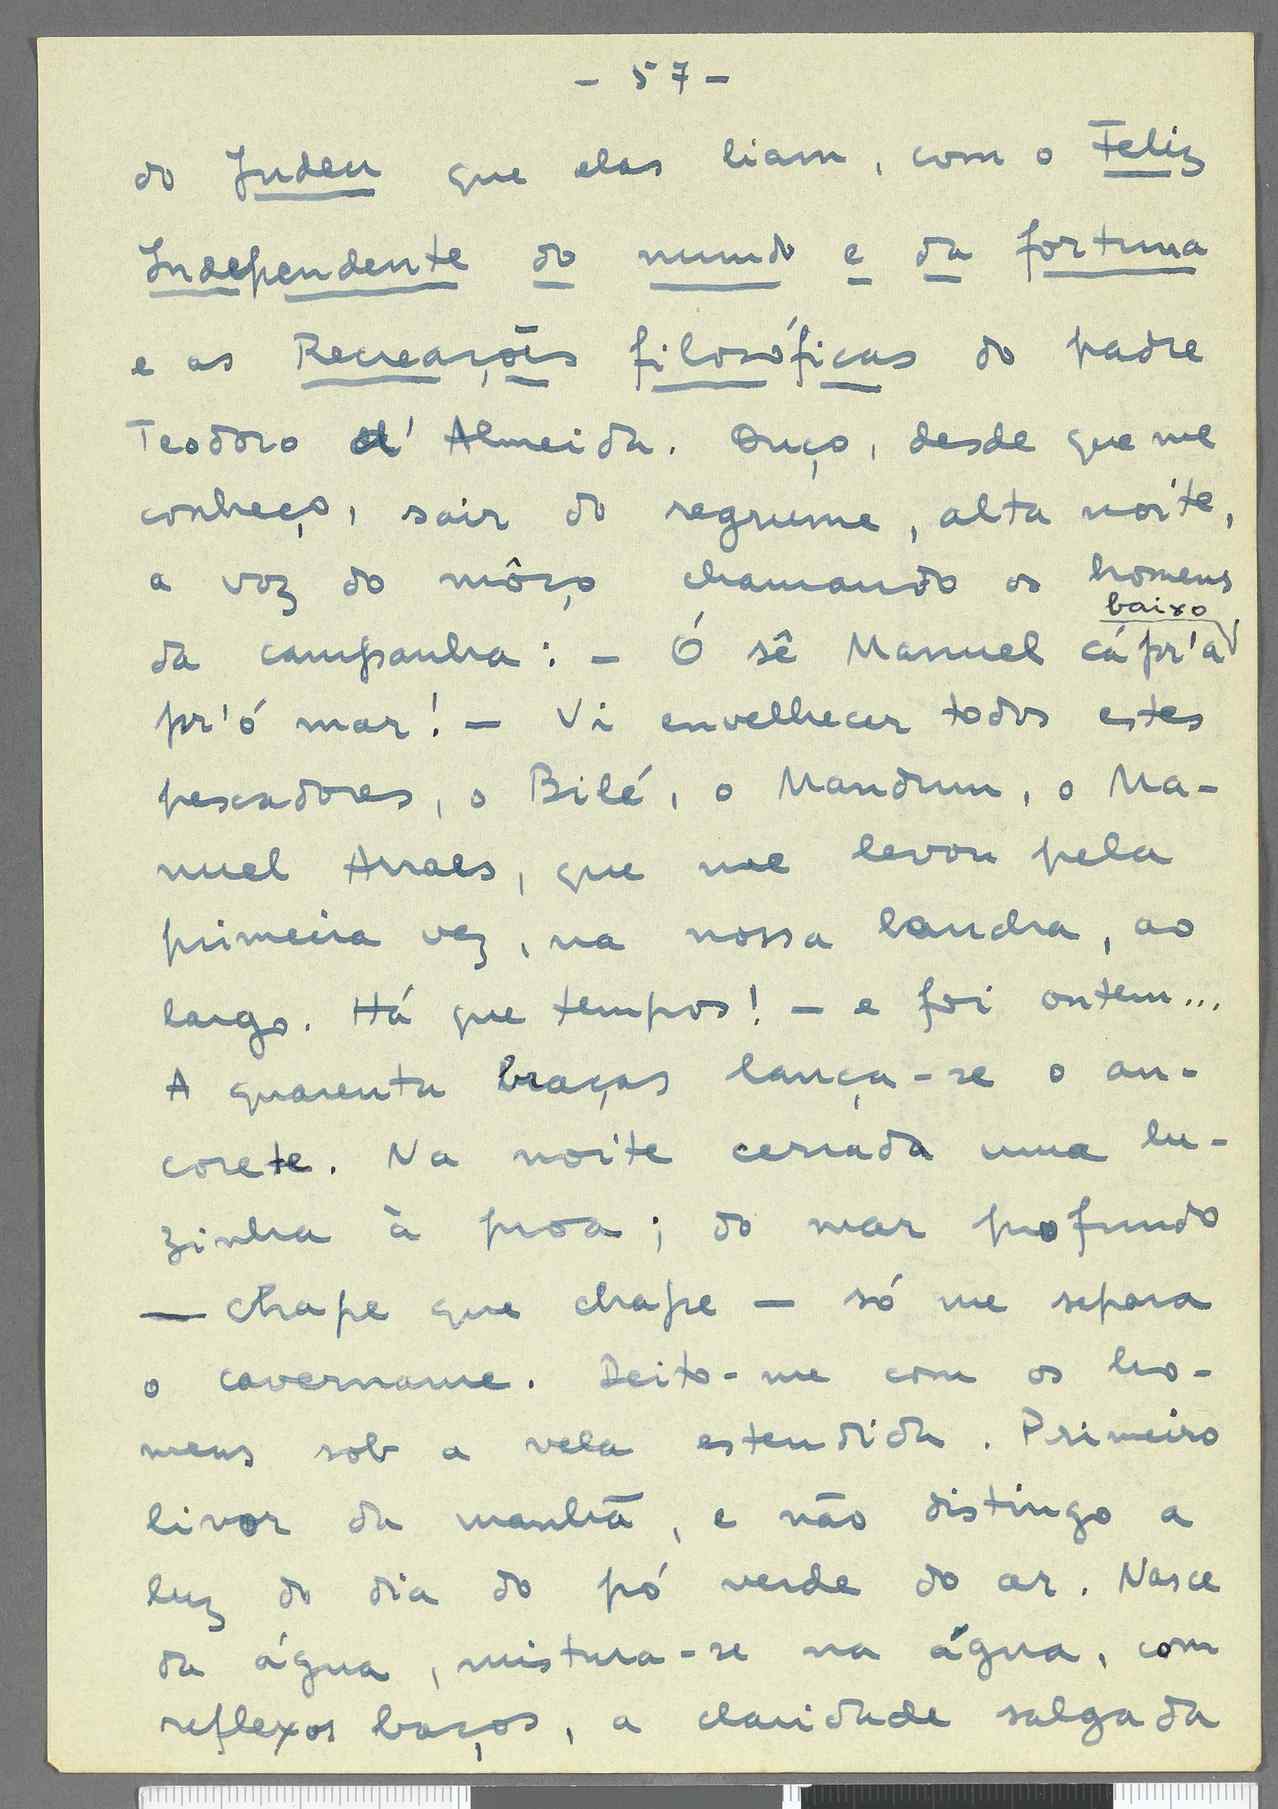 - 57 -
do Judeu que elas liam, com o Feliz
Independente do mundo e da fortuna
e as Recreações filosóficas do padre
Teodoro d' Almeida. Ouço, desde que me
conheço, sair do negrume, alta noite,
a voz do môço chamando os homens
baixo
da campanha: - Ó sê Manuel cá pr'a
pr'ó mar! - Vi envelhecer todos estes
pescadores, o Bilé, o Mandum, o Ma-
nuel Arraes, que me levou pela
primeira vez, na nossa lancha, ao
largo. Há que tempos! - e foi ontem...
A quarenta braças lança-se o an-
corete. Na noite cerrada uma lu-
zinha à proa; do mar profundo
- chape que chape - só me separa
o cavername. Deito-me com os ho-
mens sob a vela estendida. Primeiro
livor da manhã, e não distingo a
luz do dia do pó verde do ar. Nasce
da água, mistura-se na água, com
reflexos baços, a claridade salgada